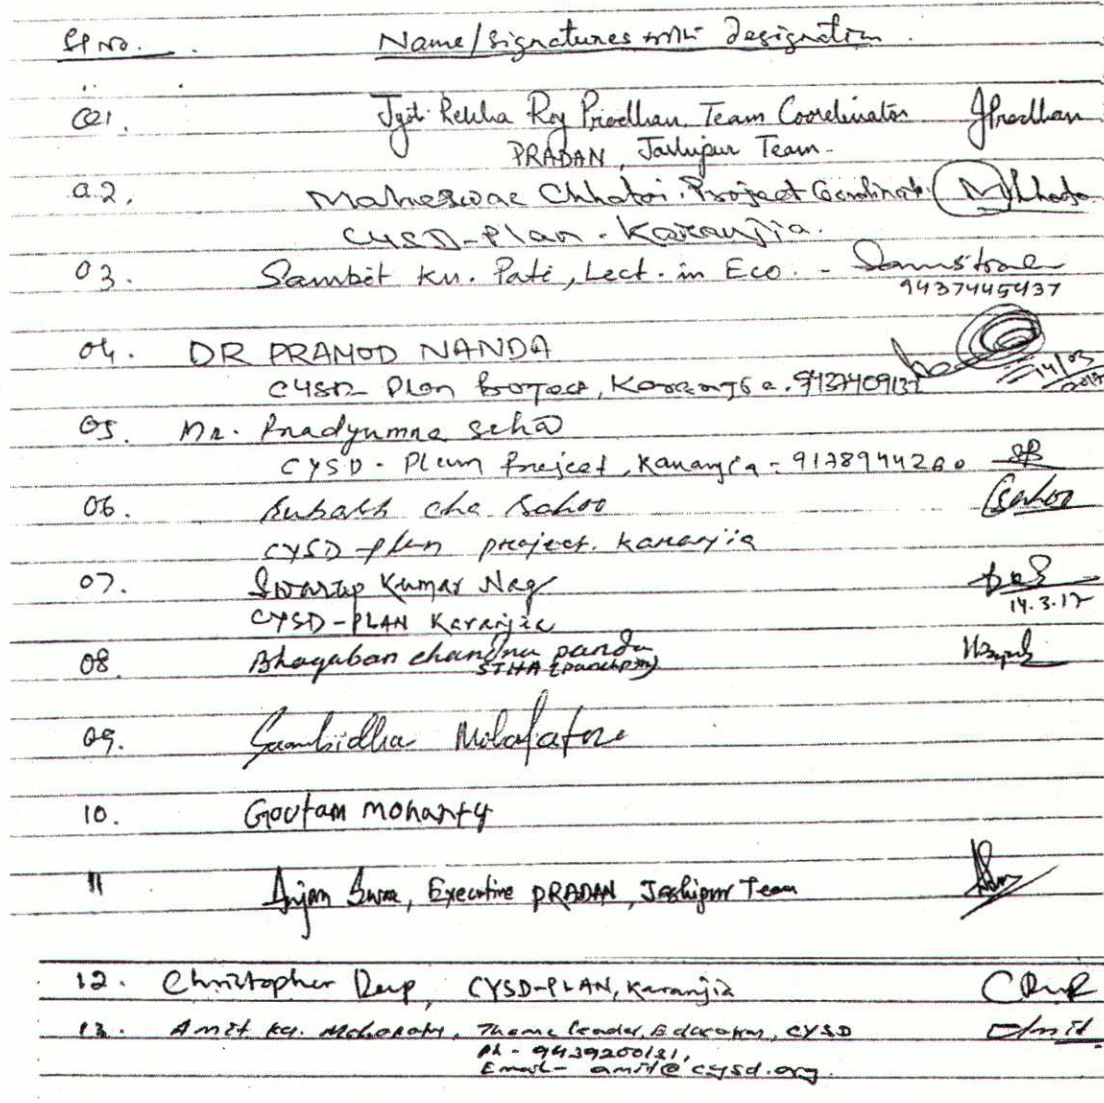 Sl No. Name/Signatures with designation.
01. Jyoti Rekha Roy Pradhan, Team Coordinator JPradhan
PRADAN, Jashipur Team.
02. Maheswar Chhatoi. Project Coordinator
CYSD-Plan - Karanjia.
03. Sambit Ku. Pati, Lect. in Eco. -
9437445437
04. DR PRAMOD NANDA
CYSD- Plan Project, Karanjia. 14/03
05. Mr. Pradyumna
CYSD- Plan Project, Karanjia - 9178944260
06. Subash cha Sahoo Sahoo
CYSD-plan project. Karanjia
07. Swarup Kumar Nag
CYSD-PLAN Karanjia 14.3.17
08. Bhagaban chandra panda
09. Sambidha
10. Goutam Mohanty
11 Anjan, Executive PRADAN, Jashipur Team
12. Christopher CYSD-PLAN, Karanjia
13. Amit Ku. Mohanty, Theme leader, Education, CYSD Amit
Ph - 9439200181,
Email - amit@cysd.org.